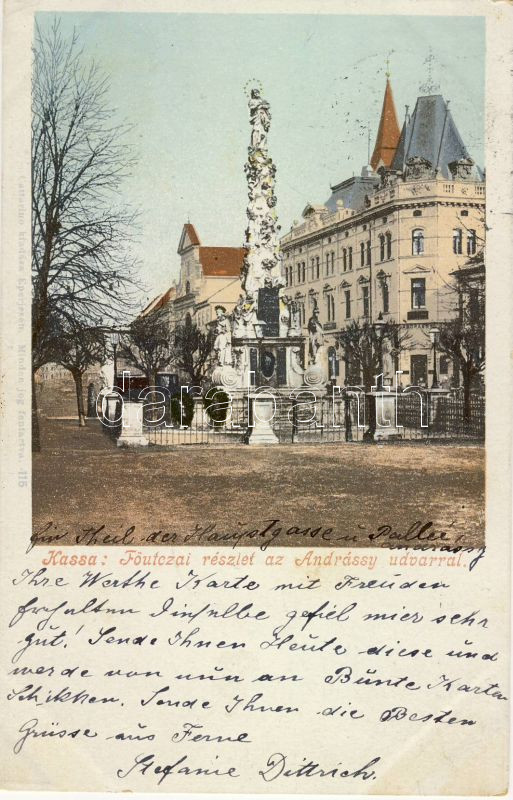 Cattarino kiadása Eperjesen. Minden jog fentartva. 115
darabanth
Ein Theil der Hauptgasse u
Andrássy
Kassa: Főutczai részlet az Andrássy udvarral.
Ihre Werthe Karte mit Freuden
erhalten Dieselbe gefiel mier sehr
gut! Sende Ihnen Heute diese und
werde von nun an Bunte Karten
Schikken. Sende Ihnen die Besten
Grüsse aus Ferne
Stefanie Dittrich.